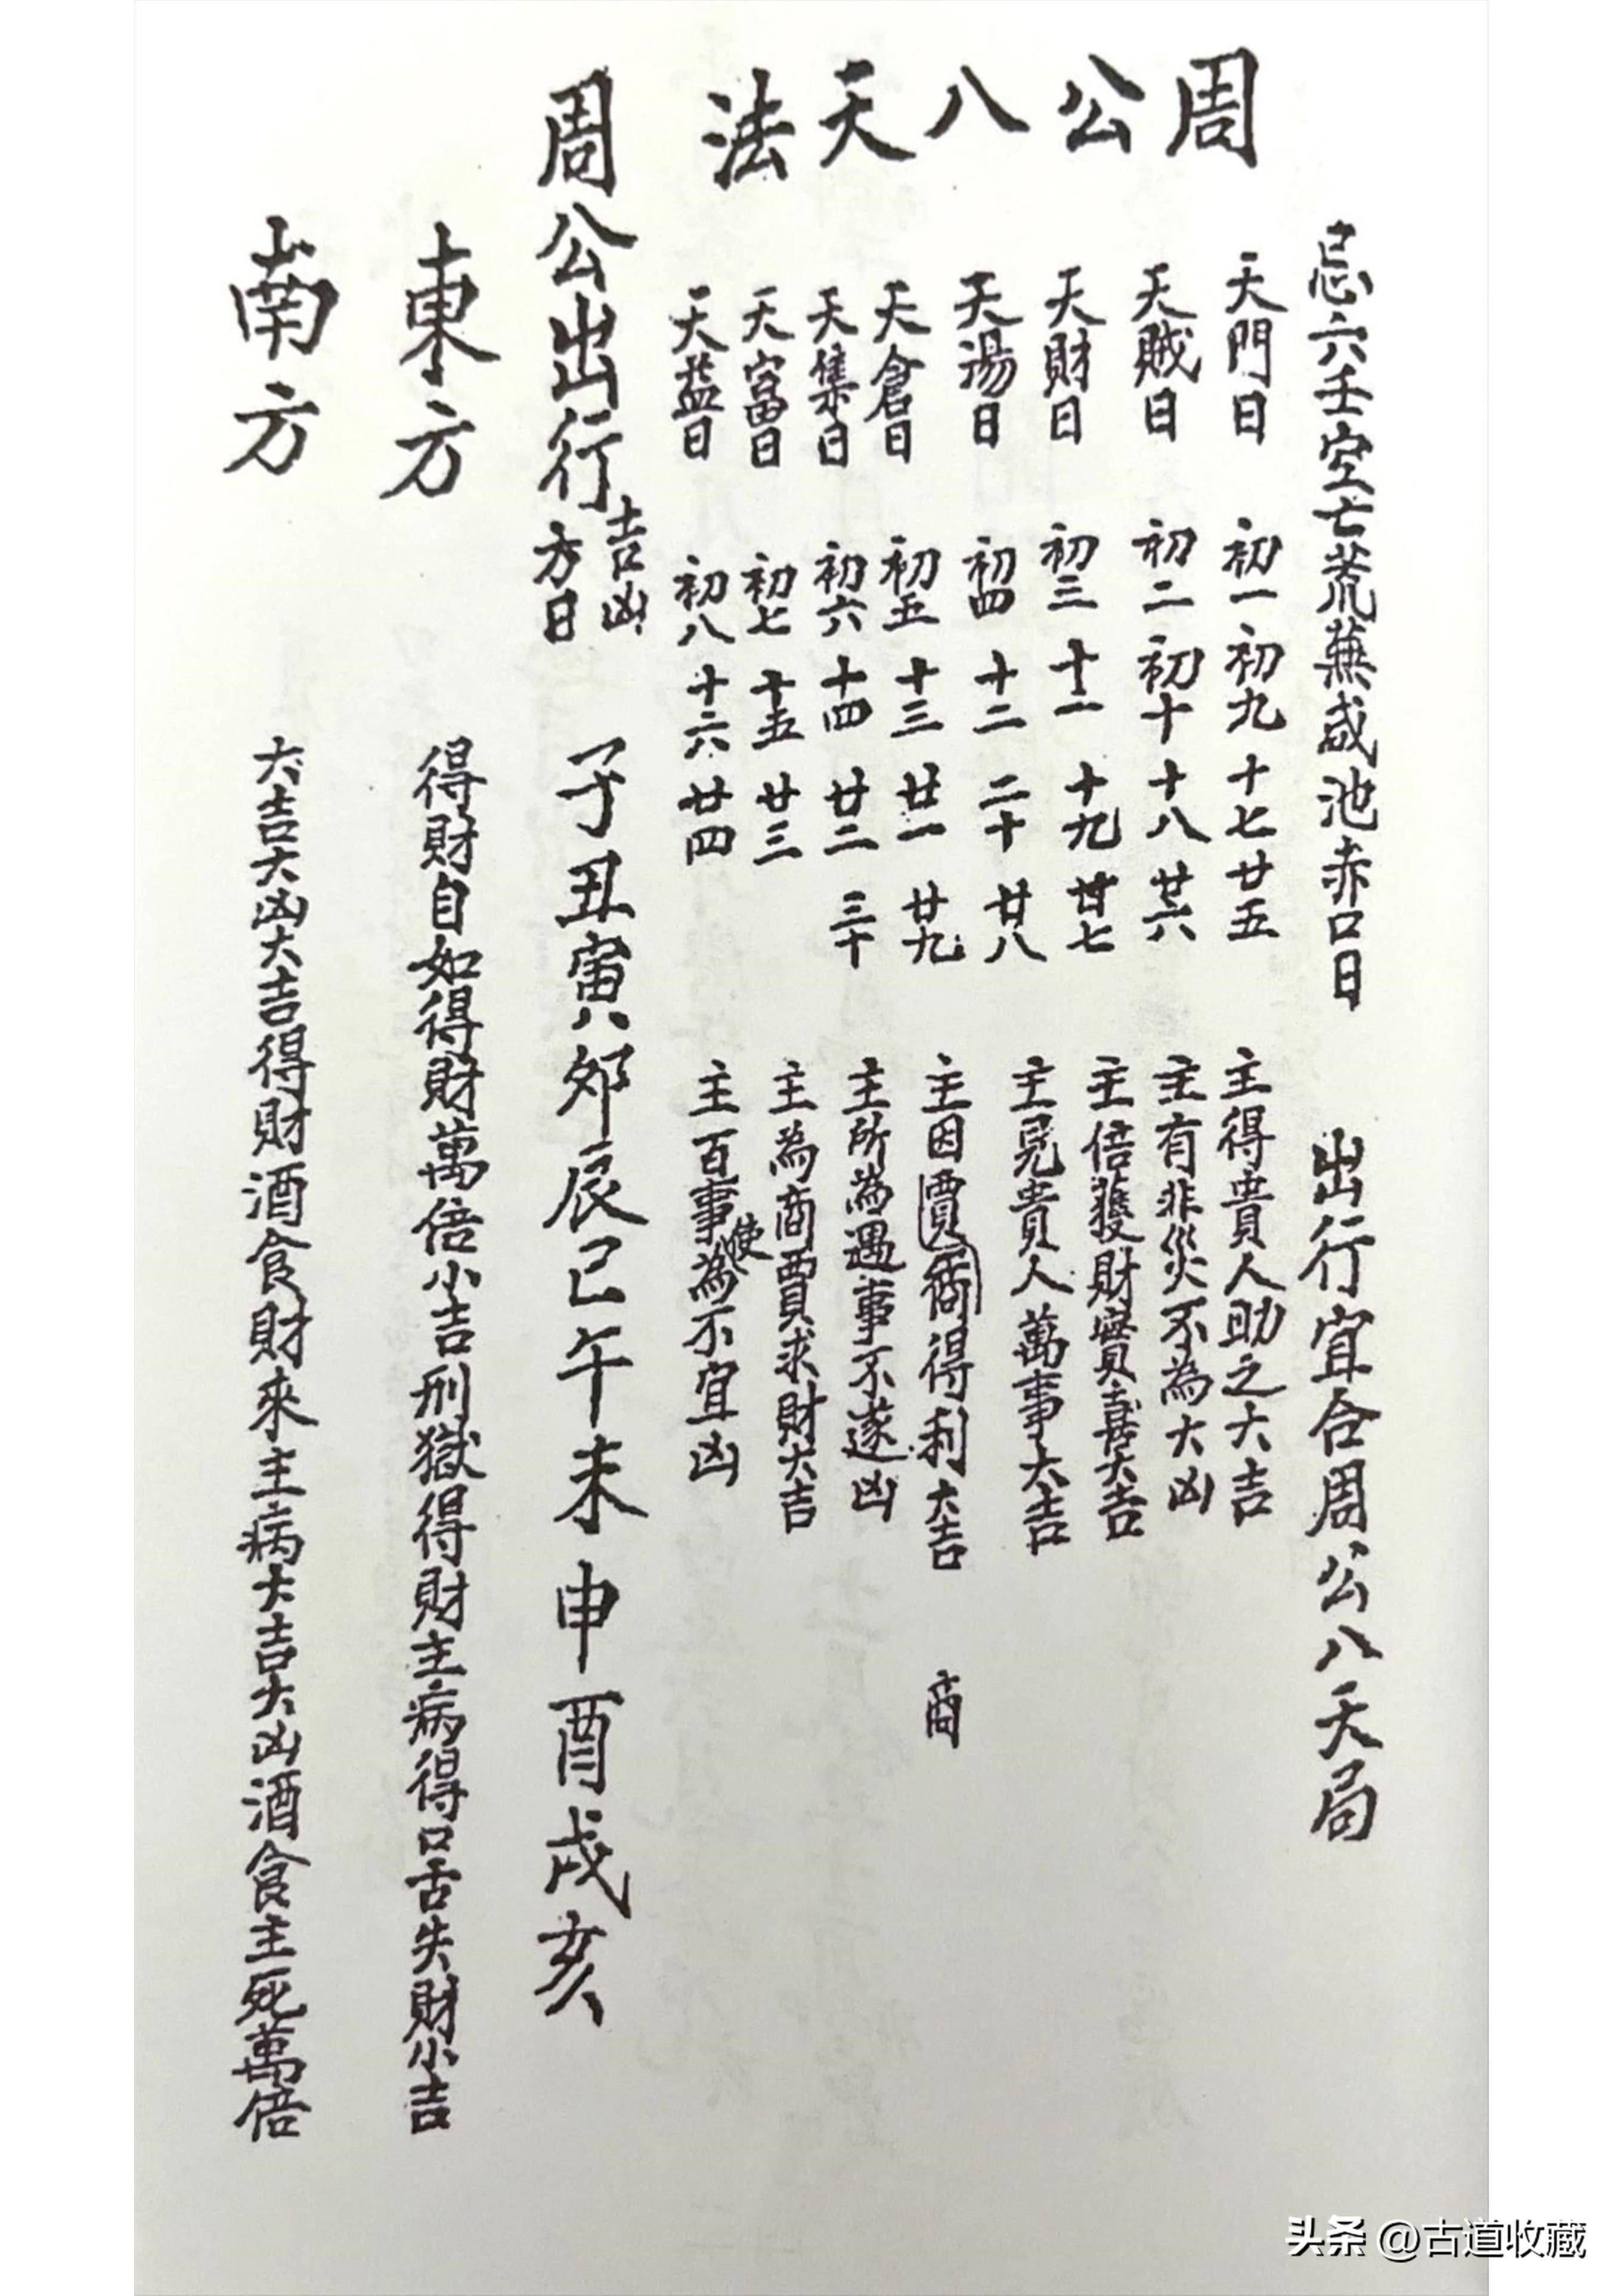 忌六壬空亡荒蕪咸池赤口日 出行宜合周公八天局
周公八天法
天門日 初一 初九 十七 廿五 主得貴人助之大吉
天賊日 初二 初十 十八 廿六 主有非災不為大凶
天財日 初三 十一 十九 廿七 主倍獲財寶喜大吉
天湯日 初四 十二 二十 廿八 主見貴人萬事大吉
天倉日 初五 十三 廿一 廿九 主因賈商得利大吉 商
天集日 初六 十四 廿二 三十 主所為遇事不遂凶
天富日 初七 十五 廿三 主為商賈求財大吉
天益日 初八 十六 廿四 主百事使為不宜凶
周公出行吉凶方日 子丑寅卯辰巳午未申酉戌亥
東方 得財自如得財萬倍小吉刑獄得財主病得口舌失財小吉
南方 大吉大凶大吉得財酒食財來主病大吉大凶酒食主死萬倍
头条 @古道收藏